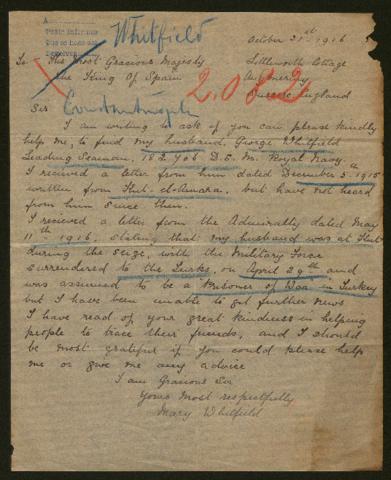 Whitfield
October 31st 1916
To The Most Gracious Majesty
The King Of Spain
Littleworth Cottage
England
2.082
Sir Constantinople
I am writing to ask if you can please kindly
help me, to find my husband, George Whitfield
Leading Seaman, 182706 D.S. Mr. Royal Navy.
I recieved a letter from him dated December 5th 1915
written from Kut-el-Amara, but have not heard
from him since then.
I recieved a letter from the Admiralty dated May
11th 1916, stating that my husband was at Kut
during the seize, with the Military Force
surrendered to the Turks, on April 29th and
was assumed to be a Prisoner of War in Turkey
but I have been unable to get further news
I have read of your great kindness in helping
people to trace their friends, and I should
be most grateful if you could please help
me or give me any advice
I am Gracious Sir
Yours Most respectfully
Mary Whitfield